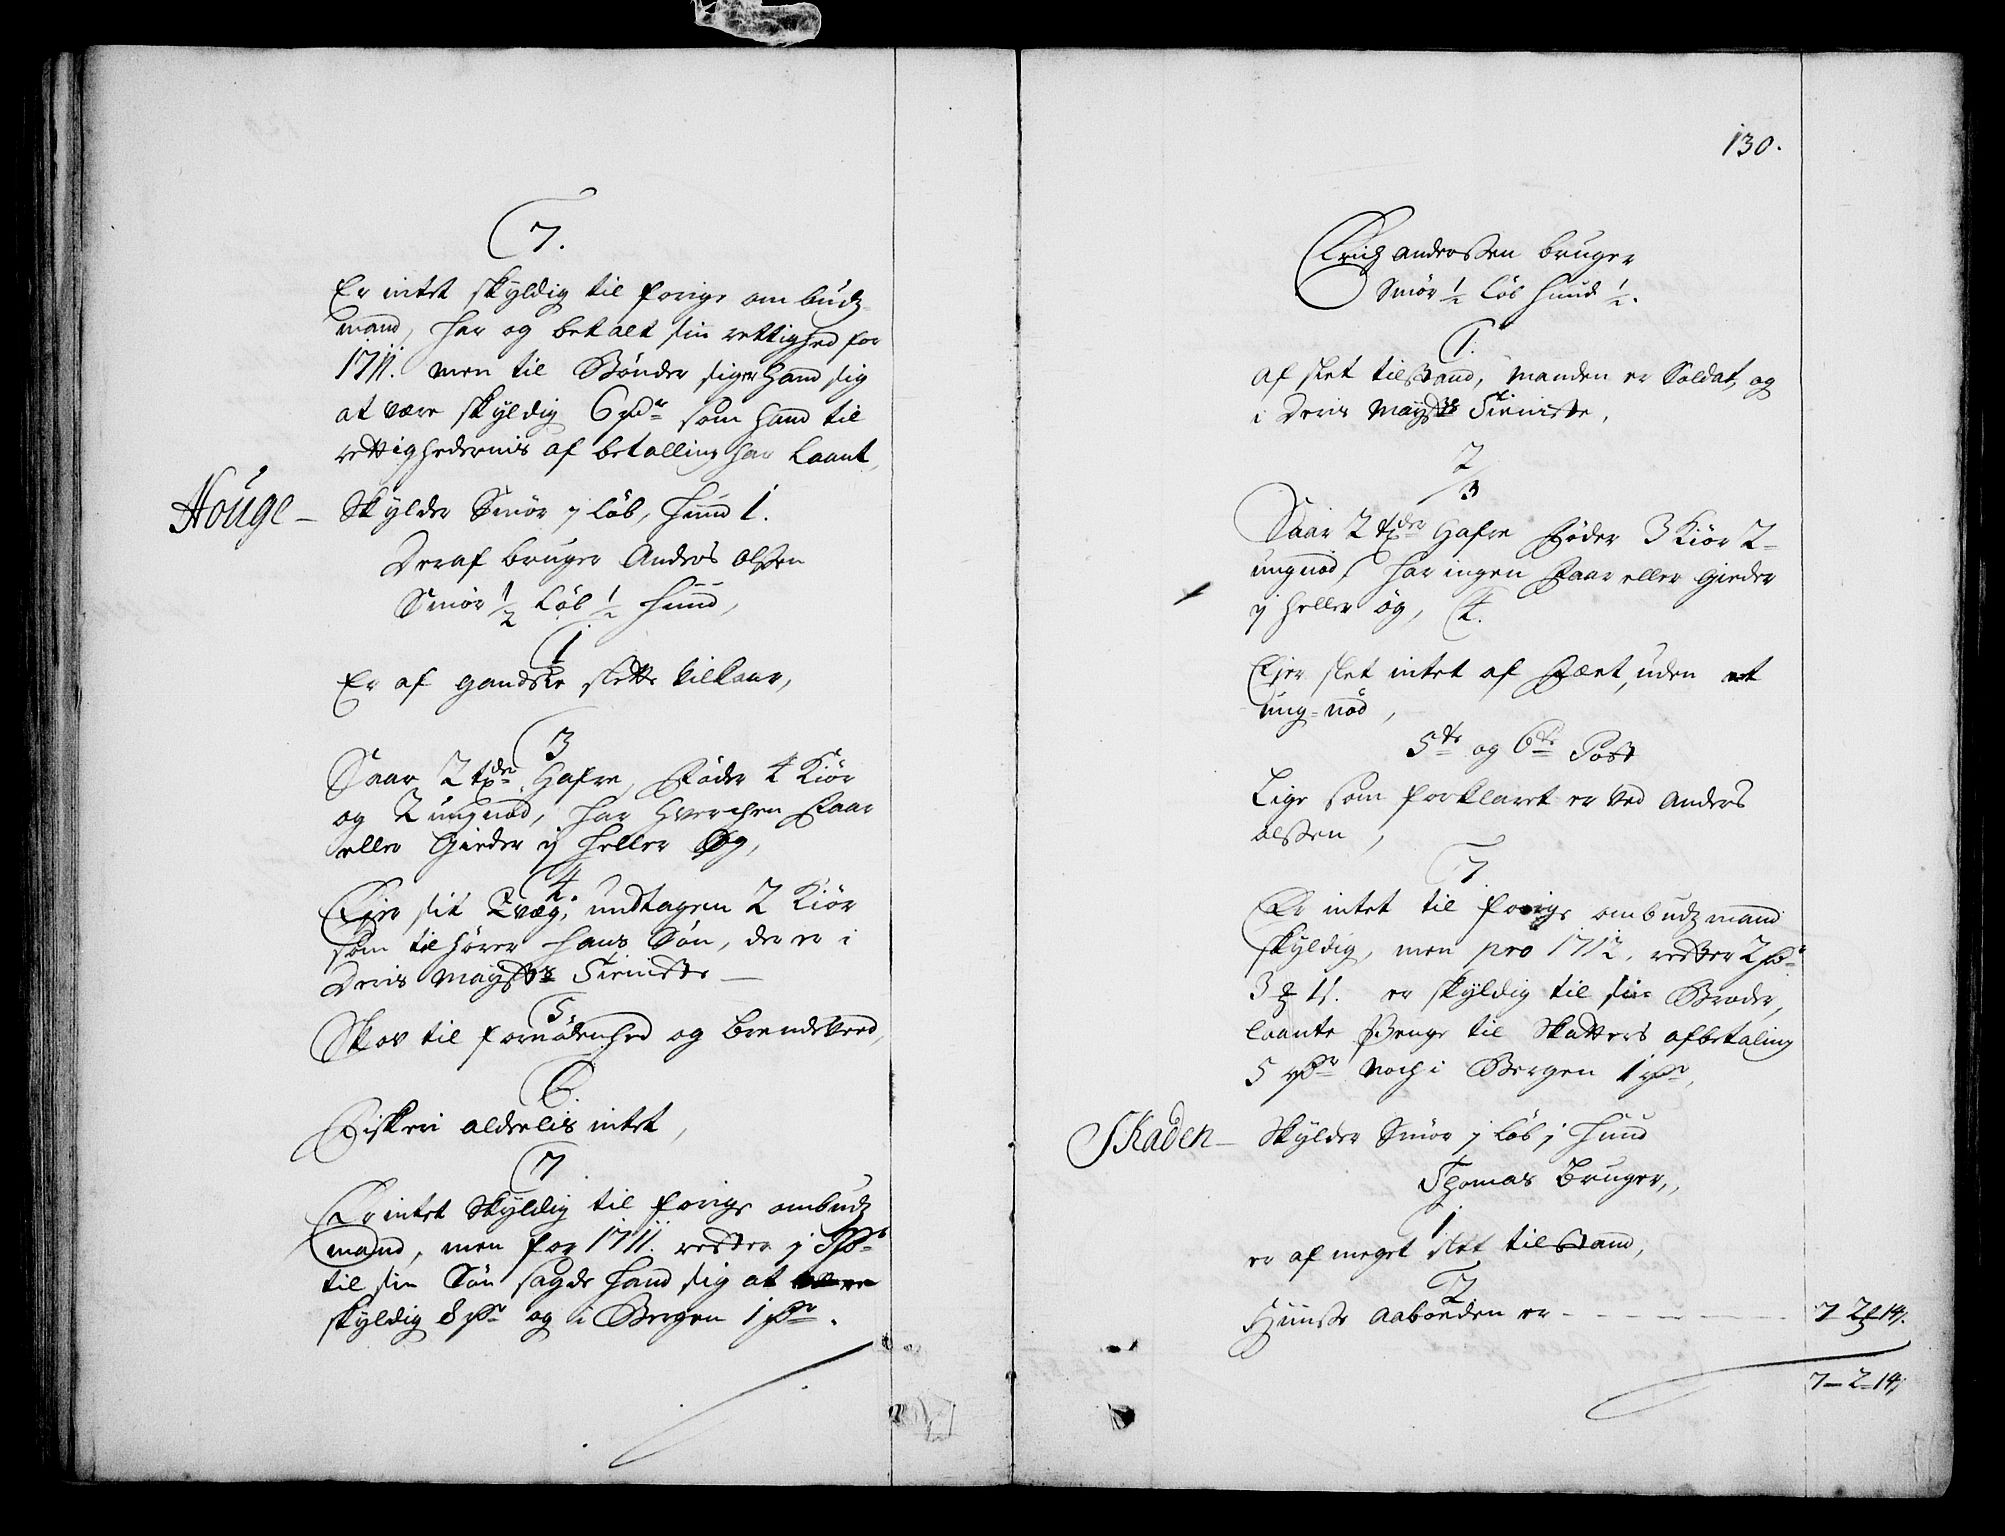 7.
Er intet skyldig til forige ombudz
mand, har og betalt sin rettighed for
1711. men til Bønder siger hand sig
at være skyldig 6 rdr som hand til
rettighedernis afbetalling har laant,
Houge – Skylder Smør j Løb, huud 1.
Deraf bruger Anders Olssen
Smør ½ Løb ½ huud,
1
Er af gandske slette vilkaar,
3
Saar 2 tdr Hafre, føder 4 Kiør
og 2 ungnød, har hverchen Faar
eller Gieder ej heller Øg,
4.
Ejer sit Qvæg, undtagen 2 Kiør
som tilhører hans Søn, der er i
Deris Maÿsts Tieniste –
5
Skov til fornødenhed og brendeved,
6.
Fiskeri aldeelis intet,
7.
Er intet Skyldig til forige ombudz
mand, men for 1711. rester j
til sin Søn sagde hand sig at være
skyldig 8 rdr og i Bergen 1 rdr.
130.
Erich anderssen bruger
Smør ½ Løb huud ½.
1.
af slet tilstand, manden er Soldat og
i Deris Maÿsts Tieniste,
2/3
Saar 2 tdr Hafre føder 3 Kiør 2
ungnød, har ingen Faar eller Gieder
ej heller øg, 4.
Ejer slet intet af Fæet, uden et
ung=nød,
5te og 6te Post
Lige som forklaret er ved Anders
olssen,
7.
Er intet til forige ombudzmand
skyldig, men pro 1712. rester 2
3 ʒ 11. er skyldig til sin Broder,
laante Penge til Skatters afbetaling
5 rdr noch i Bergen 1 rdr,
Skaden – Skylder Smør j Løb j huud
Thomas Bruger,,
1
er af meget slet tilstand,
2
Huuse Aaboeden er - - - - - - 7 2 ʒ 14.
7 – 2 – 14,